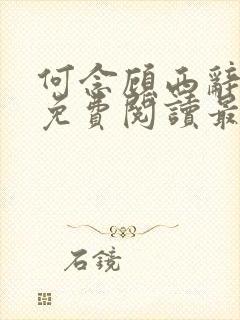 何念顧西辭
免費閱讀最
石鏡